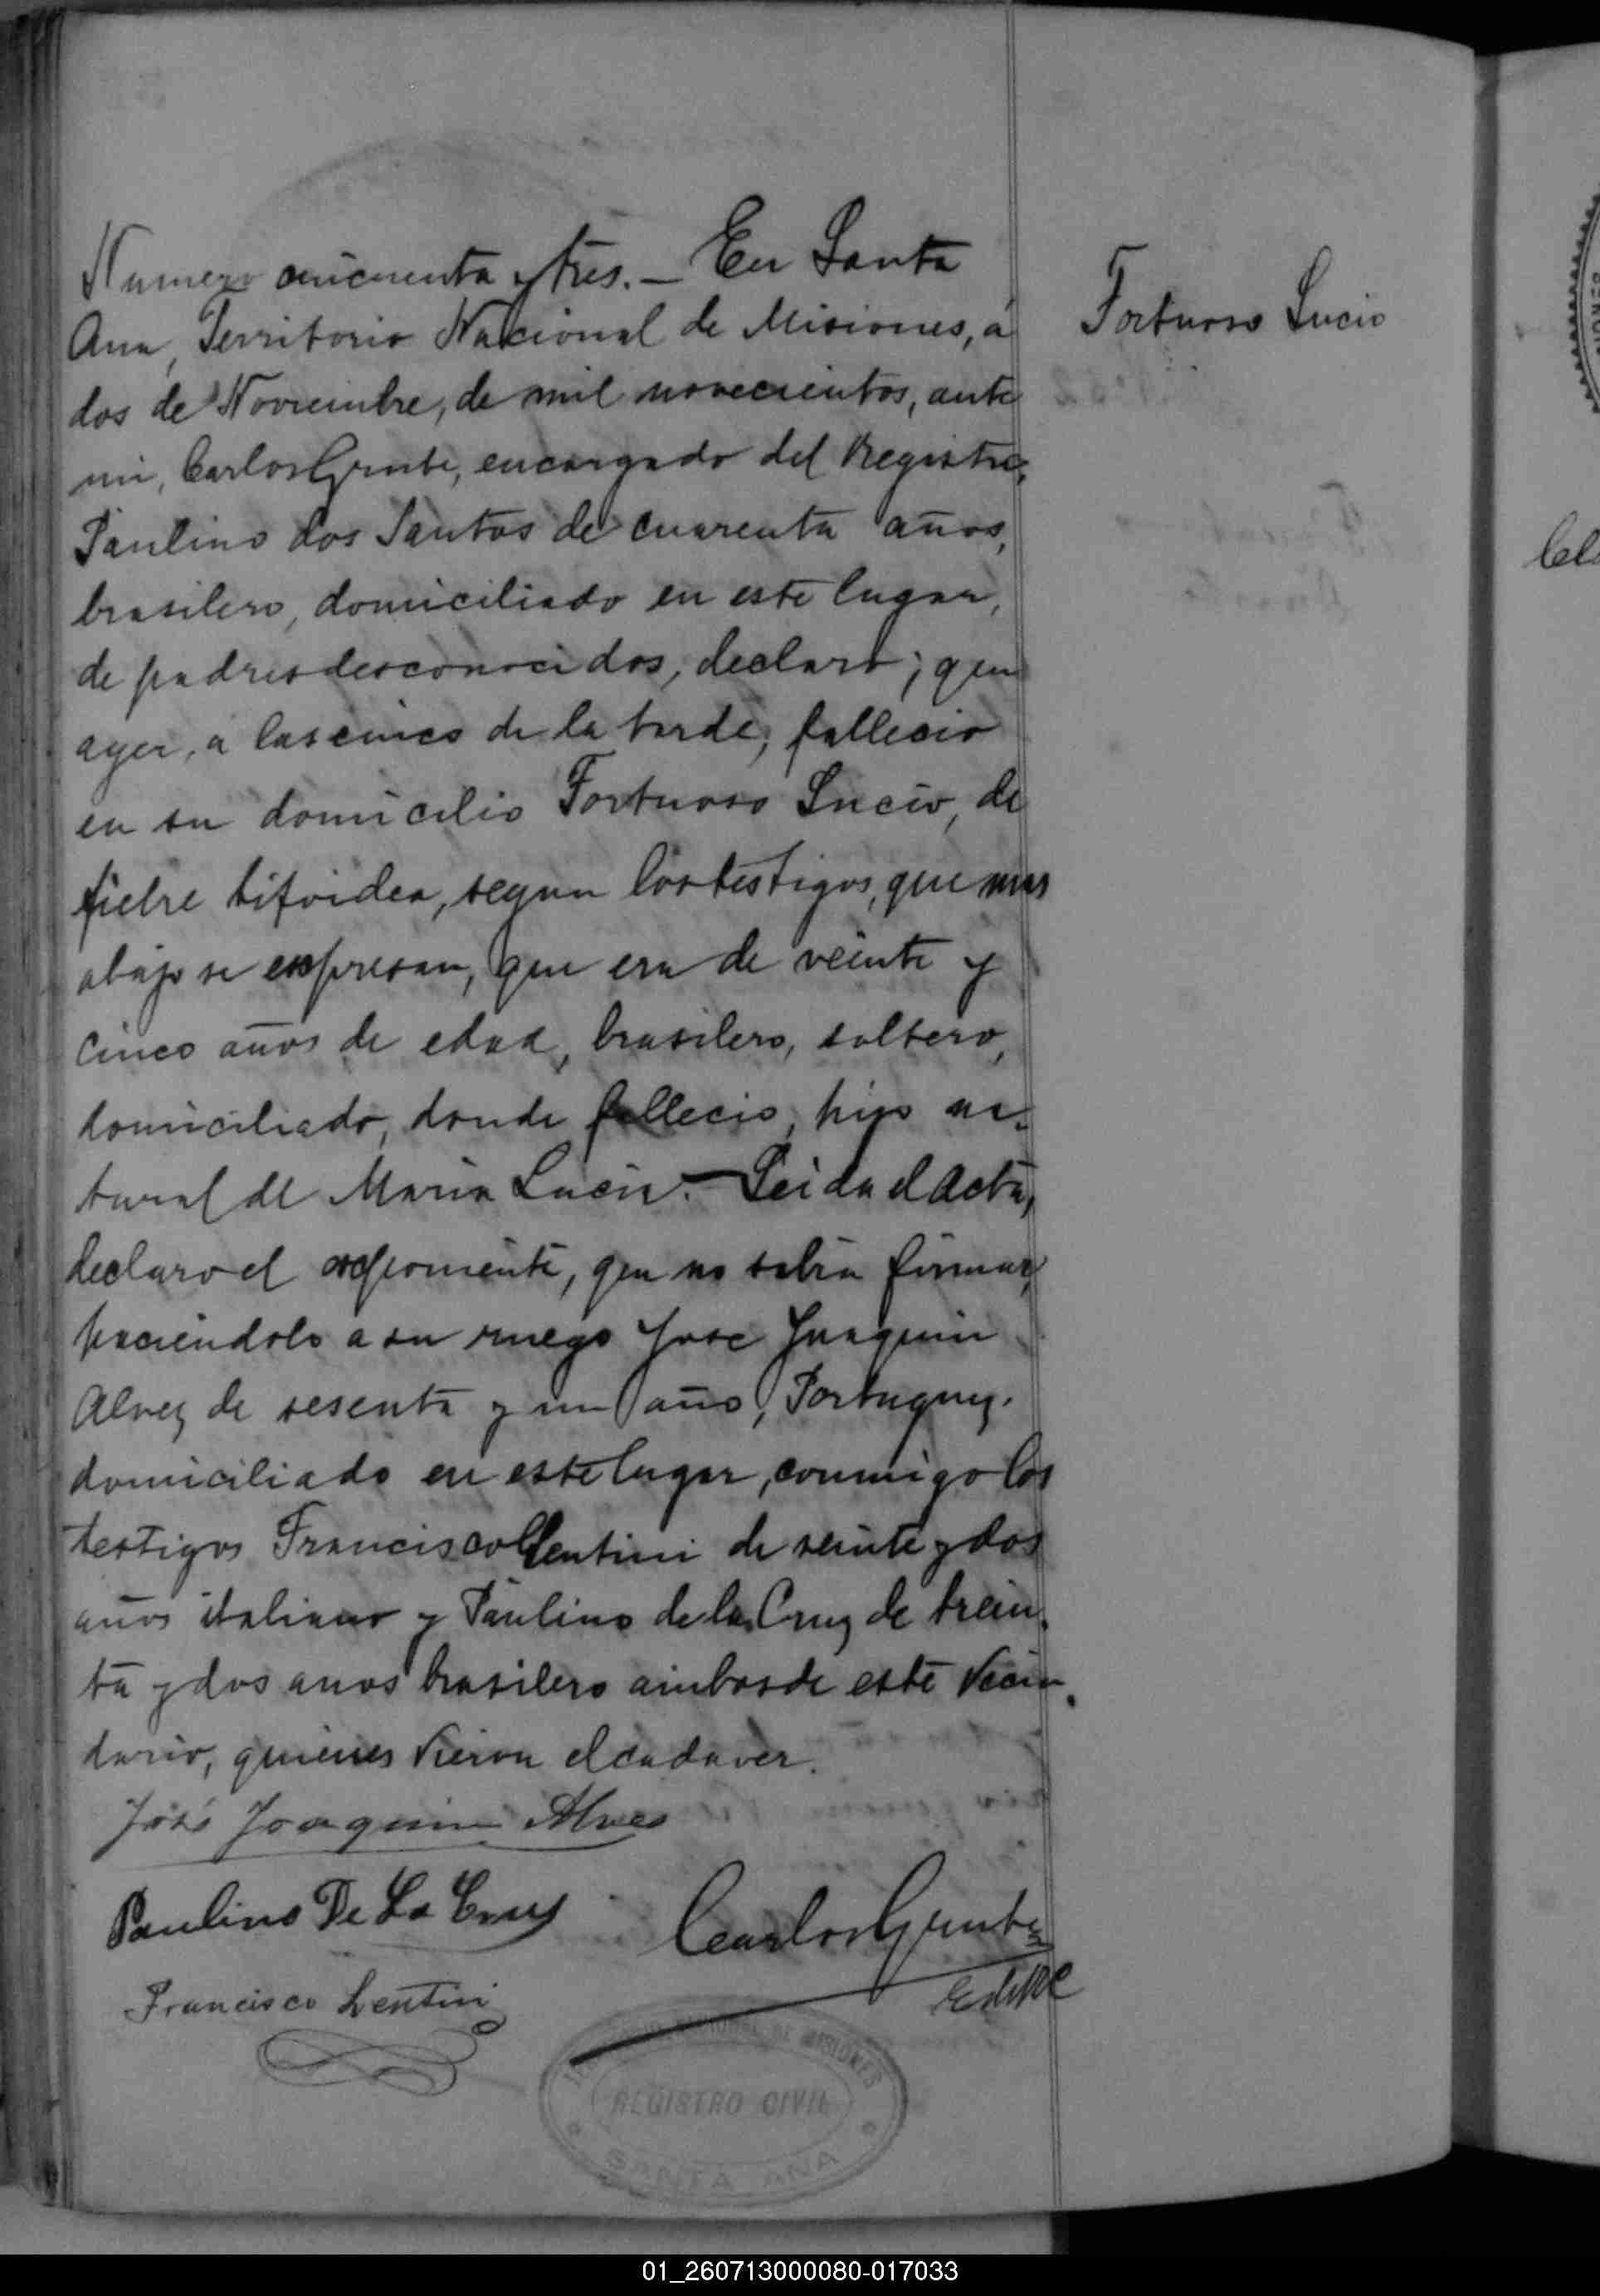 Numero cincuenta y tres. – En Santa
Ana, Territorio Nacional de Misiones, á
Fortuoso Lucio
dos de Noviembre, de mil novecientos, ante
mi, Carlos Grube, encargado del Registro,
Paulino dos Santos de cuarenta años,
brasilero, domiciliado en este lugar,
de padres desconocidos, declaro; que
ayer, a las cinco de la tarde, fallecio
en su domicilio Fortuoso Lucio, de
fiebre tifoidea, segun los testigos, que mas
abajo se espresan, que era de veinte y
cinco años de edad, brasilero, soltero,
domiciliado, donde fallecio, hijo na-
tural de Maria Lucio. – Leida el Acta,
declaro el esponiente, que no sabia firmar,
haciendolo a su ruego Jose Joaquin
Alvez de sesenta y un año, Portuguez.
domiciliado en este lugar, conmigo los
testigos Francisco Lentini de veinte y dos
años italiano y Paulino de la Cruz de trein-
ta y dos anos brasilero ambos de este Vecin-
dario, quienes vieron el cadaver.
José Joaquim Alves
Paulino De La Cruz
Carlos Grube
Francisco Lentini
NACIONAL DE MISIONES
REGISTRO CIVIL
SANTA ANA
01_260713000080-017033